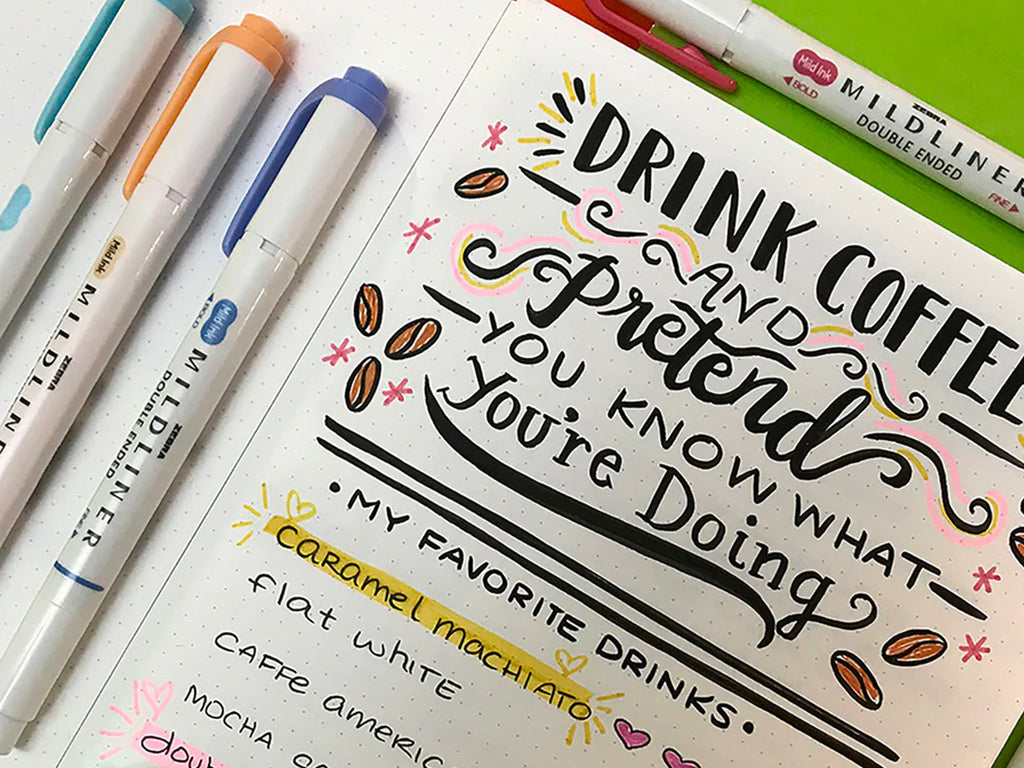 Mild Ink
BOLD
ZEBRA
MILDLINER
DOUBLE ENDED
FINE
DRINK COFFEE
AND
Pretend
YOU KNOW WHAT
You're Doing
• MY FAVORITE DRINKS •
CARAMEL MACHIATO
flat WHITE
CAFFE americ
MOCHA
Mild Ink
ZEBRA
MILDLINE
BOLD
Mild Ink
ZEBRA
MILDLINER
DOUBLE ENDED